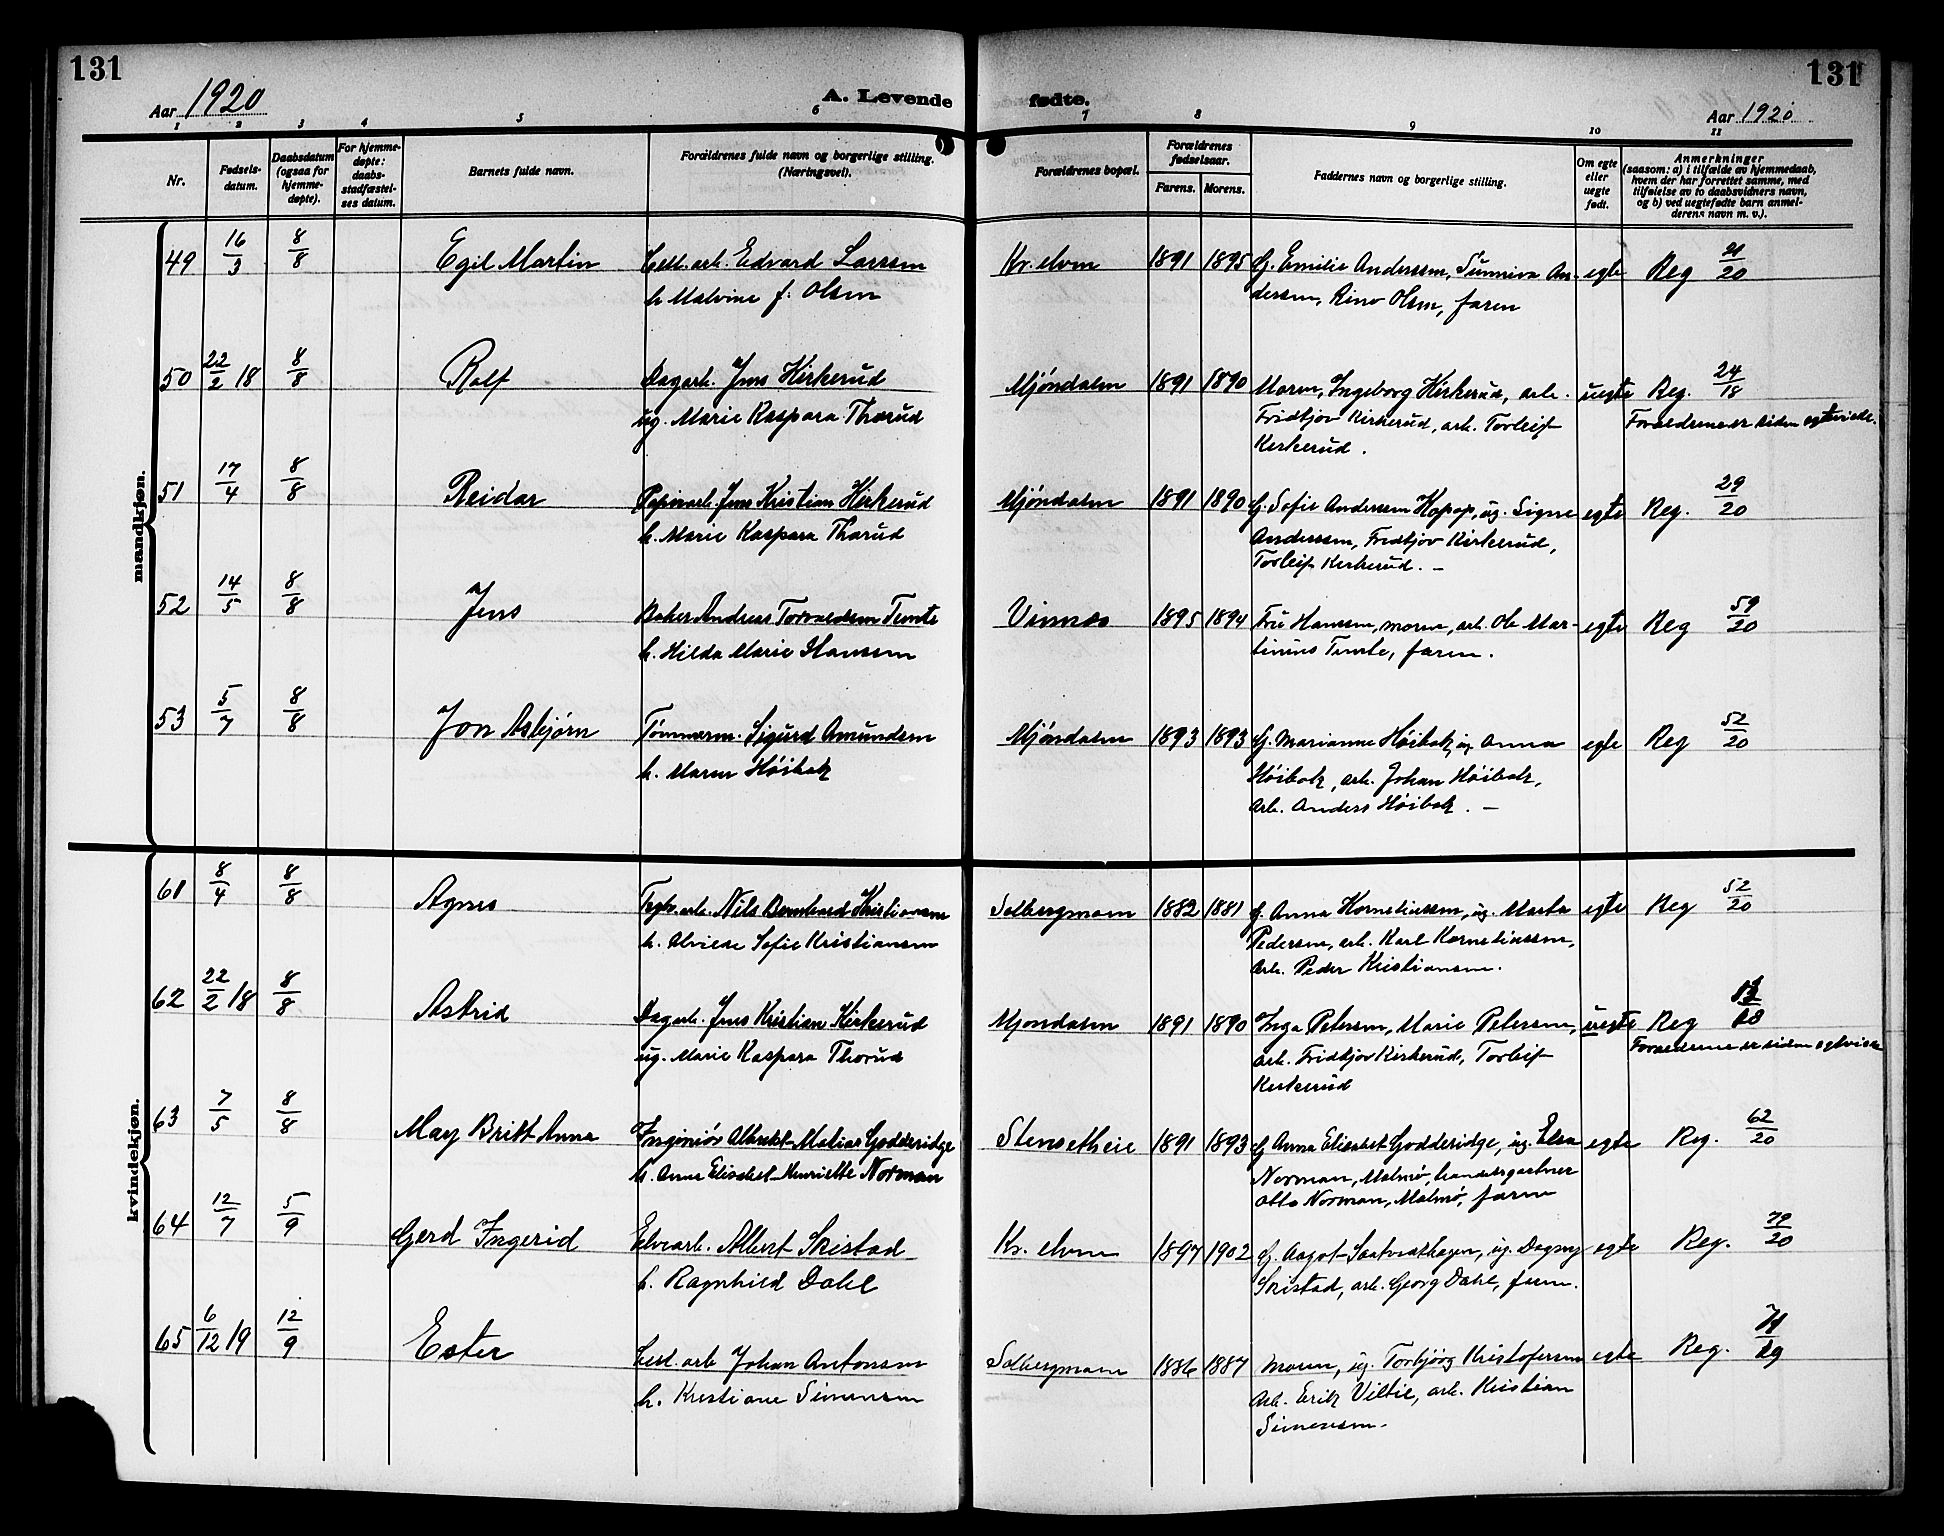 131
131
Aar 1920
A. Levende fødte.
Aar 1920
1 2 3 4 5 6 7 8 9 10 11
Nr.
Fødsels-
datum.
Daabsdatum
(ogsaa for
hjemme-
døpte).
For hjemme-
døpte:
daabs-
stadfæstel-
ses datum.
Barnets fulde navn.
Forældrenes fulde navn og borgerlige stilling.
(Næringsvei).
Forældrenes bopæl.
Forældrenes
fødselsaar.
Farens. Morens.
Faddernes navn og borgerlige stilling.
Om egte
eller
uegte
født.
Anmerkninger
(saasom: a) i tilfælde av hjemmedaab,
hvem der har forrettet samme, med
tilføielse av to daabsvidners navn,
og b) ved uegtefødte barn anmel-
derens navn m. v.).
mandkjøn.
49 16/3 8/8 Egil Martin Cell. arb. Edvard Larssen Kr. elven 1891 1895 G. Emilie Anderssen, Sunniva An- egte Reg 21/20
h. Malvine f. Olsen
derssen, Rino Olsen, faren
50 22/2 18 8/8 Rolf Dagarb. Jens Kirkerud Mjøndalen 1891 1890 Moren, Ingeborg Kirkerud, arb. uegte Reg. 24/18
ug. Marie Kaspara Thorud
Fridtjov Kirkerud, arb. Torleif
Kerkerud.
Forældrene er siden egteviede.
51 17/4 8/8 Reidar Papirarb. Jens Kristian Kirkerud Mjøndalen 1891 1890 G. Sofie Anderssen Kopop, ug. Signe egte Reg. 29/20
h. Marie Kaspara Thorud
Anderssen, Fridtjov Kirkerud,
Torleif Kerkerud. –
52 14/5 8/8 Jens Baker Andreas Torvaldsen Temte Vinnes 1895 1894 Fru Hanssen, moren, arb. Ole Mar- egte Reg 59/20
h. Hilda Marie Hanssen
tinius Temte, faren.
53 5/7 8/8 Jon Asbjørn Tømmerm. Sigurd Amundsen Mjøndalen 1893 1893 G. Marianne Høibak, ug. Anna egte Reg 52/20
h. Maren Høibak
Høibak, arb. Johan Høibak,
arb. Anders Høibak. –
kvindekjøn.
61 8/4 8/8 Agnes Teglv. arb. Nils Bernhard Kristiansen Solbergmoen 1882 1881 G. Anna Korneliussen, ug. Marta egte Reg 52/20
h. Alvilde Sofie Kristiansen
Pedersen, arb. Karl Korneliussen,
arb. Peder Kristiansen.
62 22/2 18 8/8 Astrid Dagarb. Jens Kristian Kirkerud Mjøndalen 1891 1890 Inga Petersen, Marie Petersen, uegte Reg
ug. Marie Kaspara Thorud
arb. Fridtjov Kirkerud, Torleif
Kerkerud
Forældrene er siden egteviede
63 7/5 8/8 May Britt Anna Ingeniør Albrekt Matias Godderidge Stensetheie 1891 1893 G. Anna Elisabet Godderidge, ug. Elsa egte Reg. 62/20
h. Anna Elisabet Henriette Norman
Norman, Malmø, handelsgartner
Otto Norman, Malmø, faren
64 12/7 5/9 Gerd Ingerid Elvearb. Albert Skistad Kr. elven 1897 1902 G. Aagot Saatvedthagen, ug. Dagny egte Reg. 79/20
h. Ragnhild Dahl
Skistad, arb. Georg Dahl, faren.
65 6/12 19 12/9 Ester Cell. arb Johan Antonsen Solbergmoen 1886 1887 Moren, ug. Torbjørg Kristofersen egte Reg. 71/19
h. Kristiane Simensen
arb. Erik Viltil, arb. Kristian
Simensen.